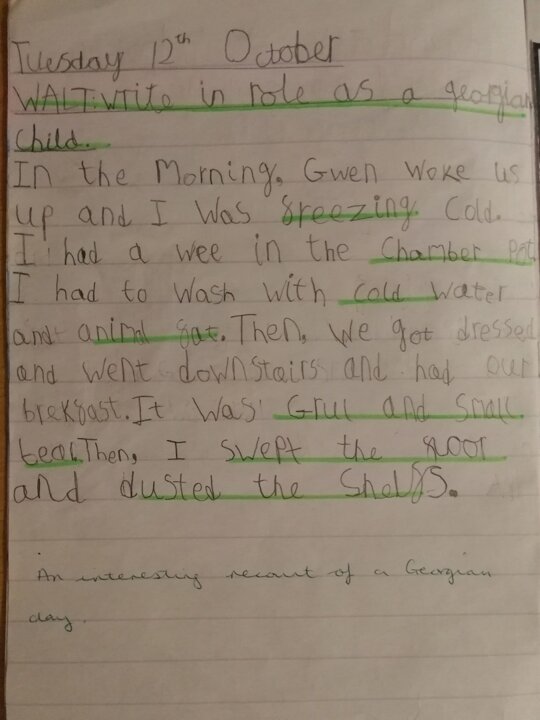 Tuesday 12th October
WALT: write in role as a georgian
child.
In the Morning, Gwen woke us
up and I was freezing cold.
I had a wee in the chamber pot
I had to wash with cold water
and animal fat. Then, we got dressed
and went downstairs and had our
brekfast. It was Grul and small
Then, I swept the floor
and dusted the shelfs.
An interesting recount of a Georgian
day.